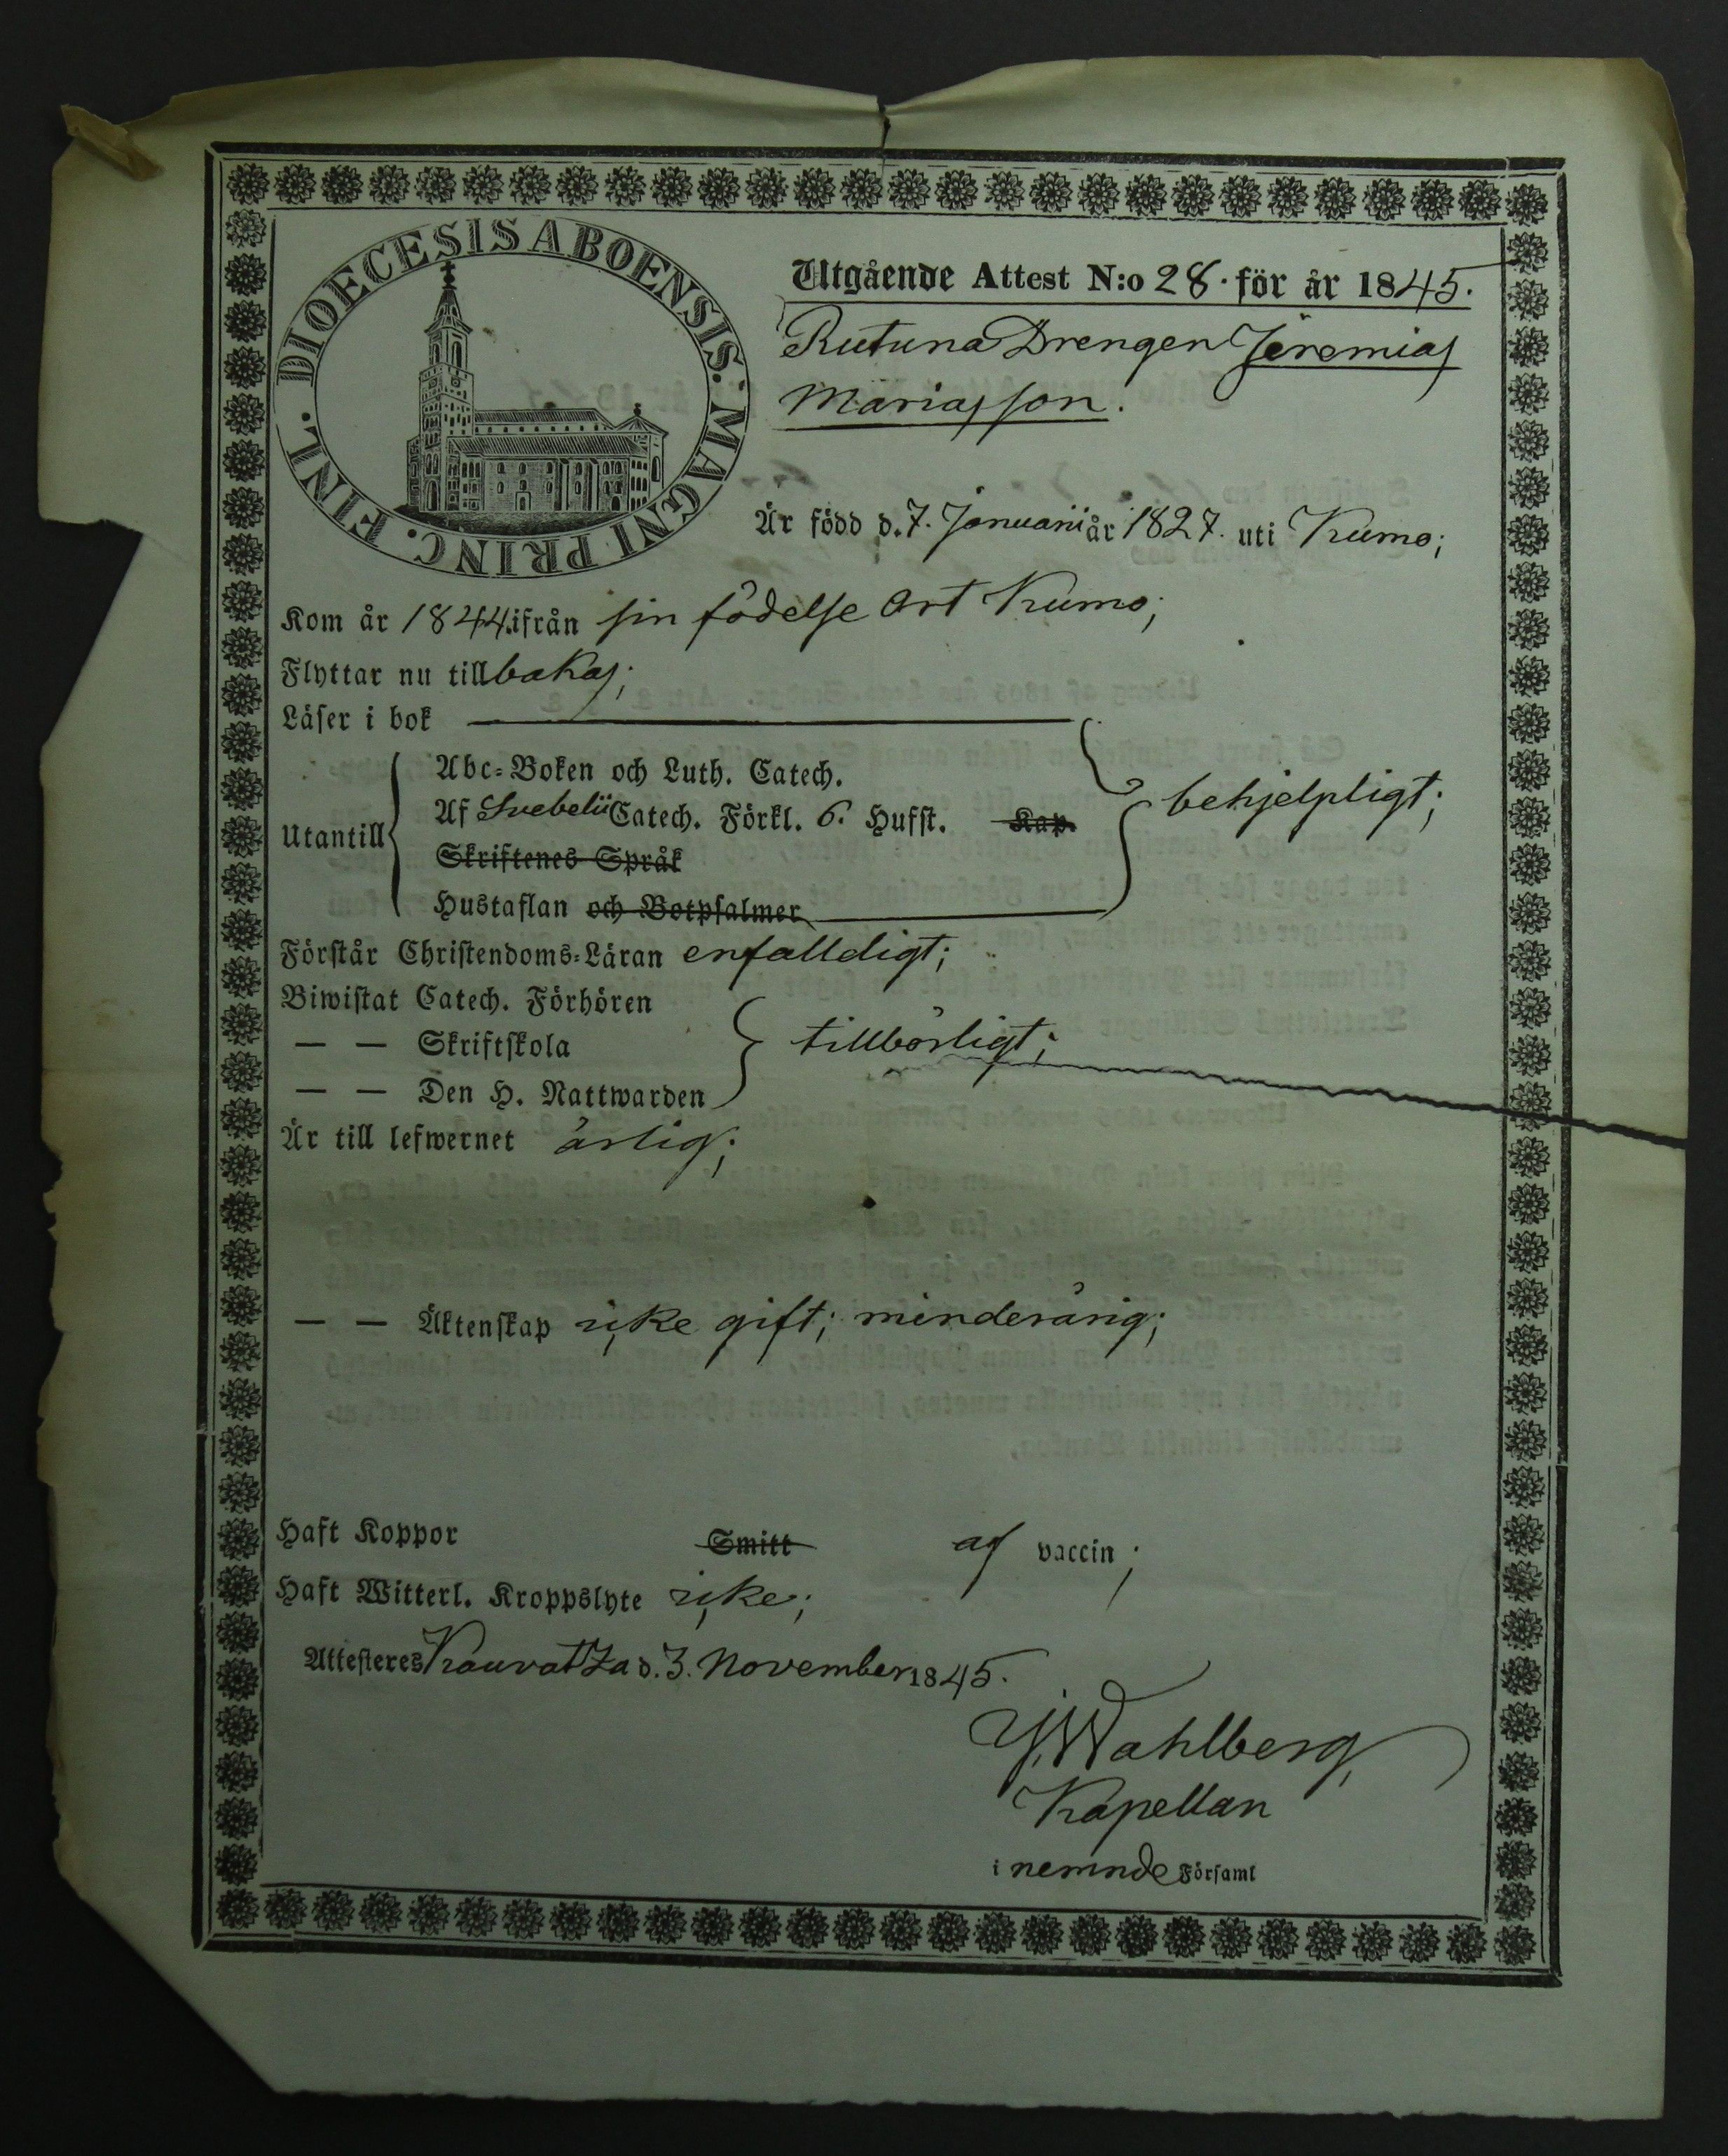 DIOECESIS ABOENSIS. MAGNI PRINC. FINL.
Utgående Attest N:o 28. för år 1845.
Rutuna Drengen Jeremias
Mariasson.
Är född d. 7. Januarii år 1827. uti Kumo;
Kom år 1844. ifrån sin födelse Ort Kumo;
Flyttar nu till bakas;
Läser i bok
Abc-Boken och Luth. Catech.
Utantill Af Svebelii Catech. Förkl. 6. Hufst. Kap. behjelpligt;
Skriftenes Språk
Hustaflan och Botpsalmer
Förstår Christendoms-Läran enfalldigt;
Biwistat Catech. Förhören
— — Skriftskola tillbörligt;
— — Den H. Nattwarden
Är till lefwernet ärlig;
— — Äktenskap icke gift; minderårig;
Haft Koppor Smitt af vaccin;
Haft Witterl. Kroppslyte icke;
Attesteras Kauvatza d. 3. November 1845.
Wahlberg,
Kapellan
i nemnde Församl